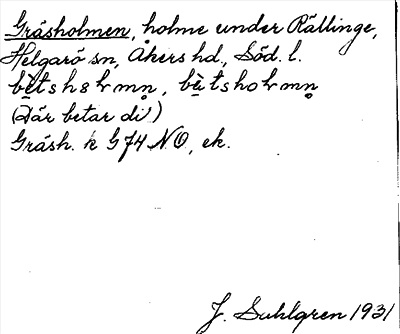 Gräsholmen, holme under Rällinge,
Helgarö sn, Åkers hd, Söd. l.
(Där betar di)
Gräsh. k G74 NO, ek.
J. Sahlgren 1931